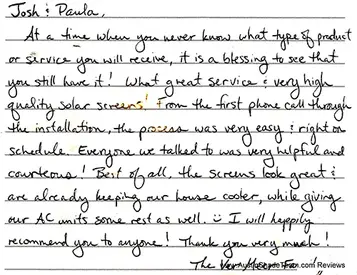 Josh & Paula,
At a time when you never know what type of product
or service you will receive, it is a blessing to see that
you still have it! What great service & very high
quality solar screens! From the first phone call through
the installation, the process was very easy & right on
schedule. Everyone we talked to was very helpful and
courteous! Best of all, the screens look great &
are already keeping our house cooler, while giving
our AC units some rest as well. :) I will happily
recommend you to anyone! Thank you very much!
The
Reviews